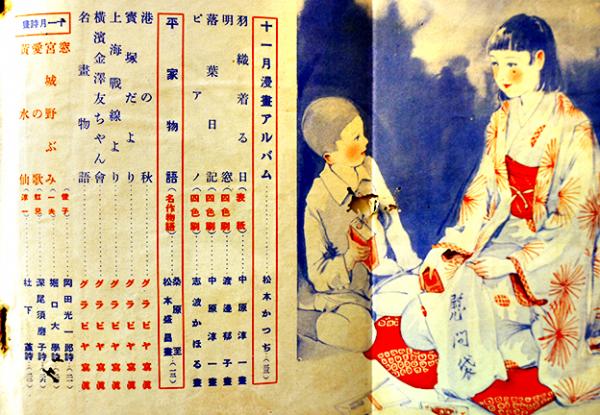 十一月漫畫アルバム 松本かつぢ
羽織着る日(表紙) 中原淳一畫
明窓(四色刷) 渡邊郁子畫
落葉日記(四色刷) 中原淳一畫
ピアノ(四色刷) 志波かほる畫
平家物語(名作物語) 桑原至 松本盛昌畫
港の秋 グラビヤ寫眞
寳塚だより グラビヤ寫眞
上海戰線より グラビヤ寫眞
横濱金澤友ちやん會 グラビヤ寫眞
名畫物語 グラビヤ寫眞
十一月詩集
窓 岡田光一郎詩
宮城野ぶみ 堀口大學詩
愛の歌 深尾須磨子詩
黃水仙
慰問袋